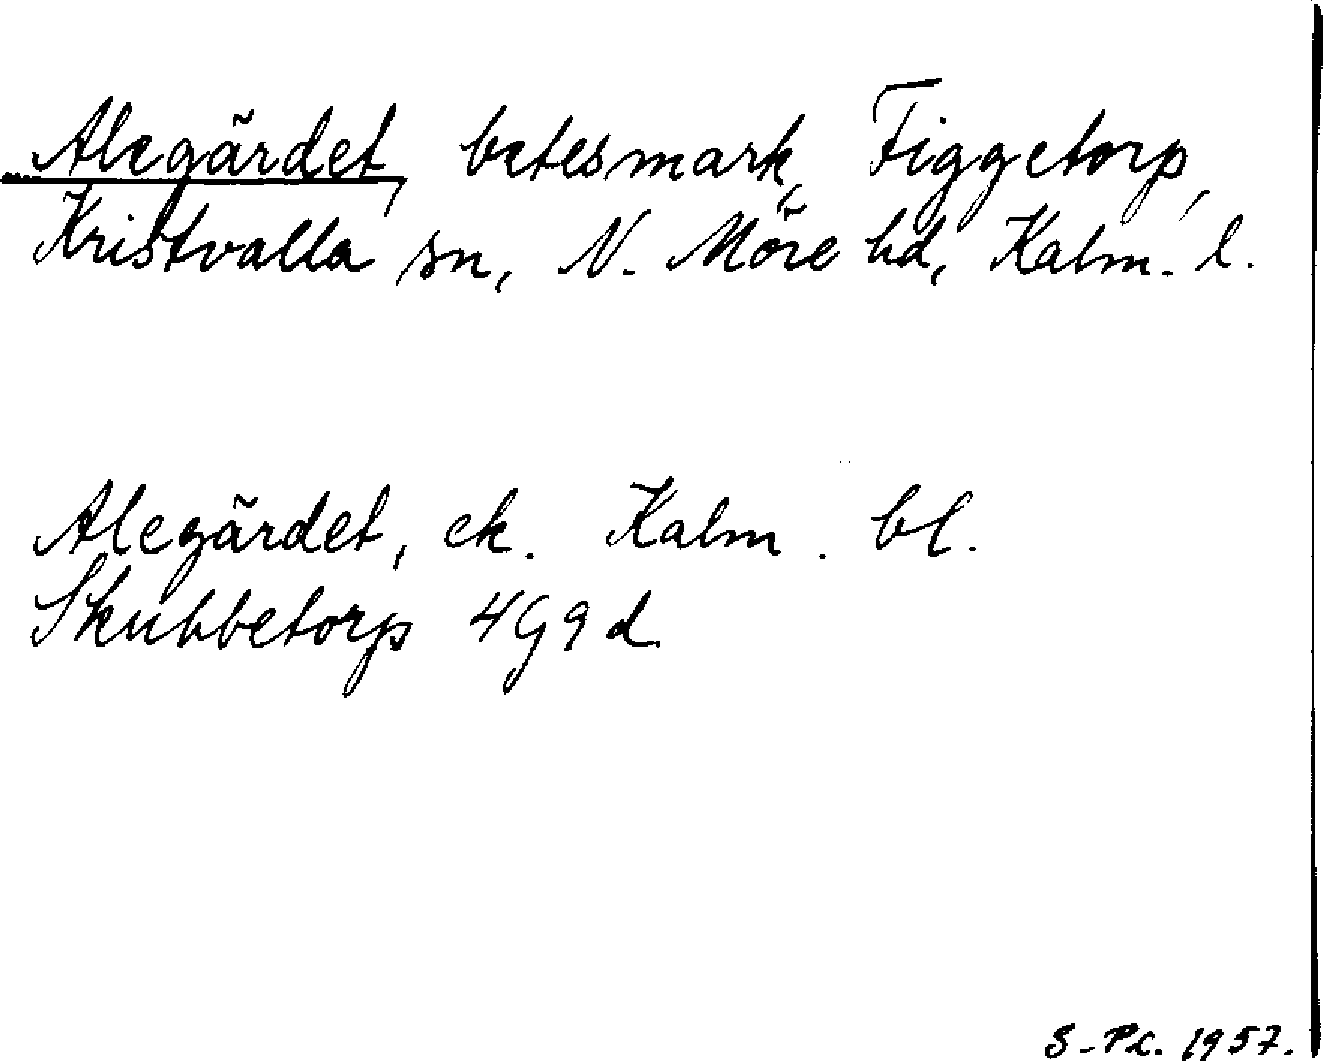 Alegärdet, betesmark, Figgetorp,
Kristvalla sn, N. Möre hd, Kalm. l.
Alegärdet, ek. Kalm. bl.
Skubbetorp 4G9d
S-Pc. 1957.